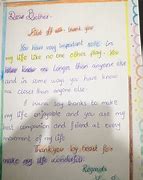 Dear Brother,
thank you
You have very important role in
my life like no one other play. You
know me longer than anyone else
and in some ways, you have know
me closer than anyone else.
I have say thanks to make
my life enjoyable and you are my
best companion and friend at every
movement of my life.
Thankyou by heart for
make my life wonderful.
Regards